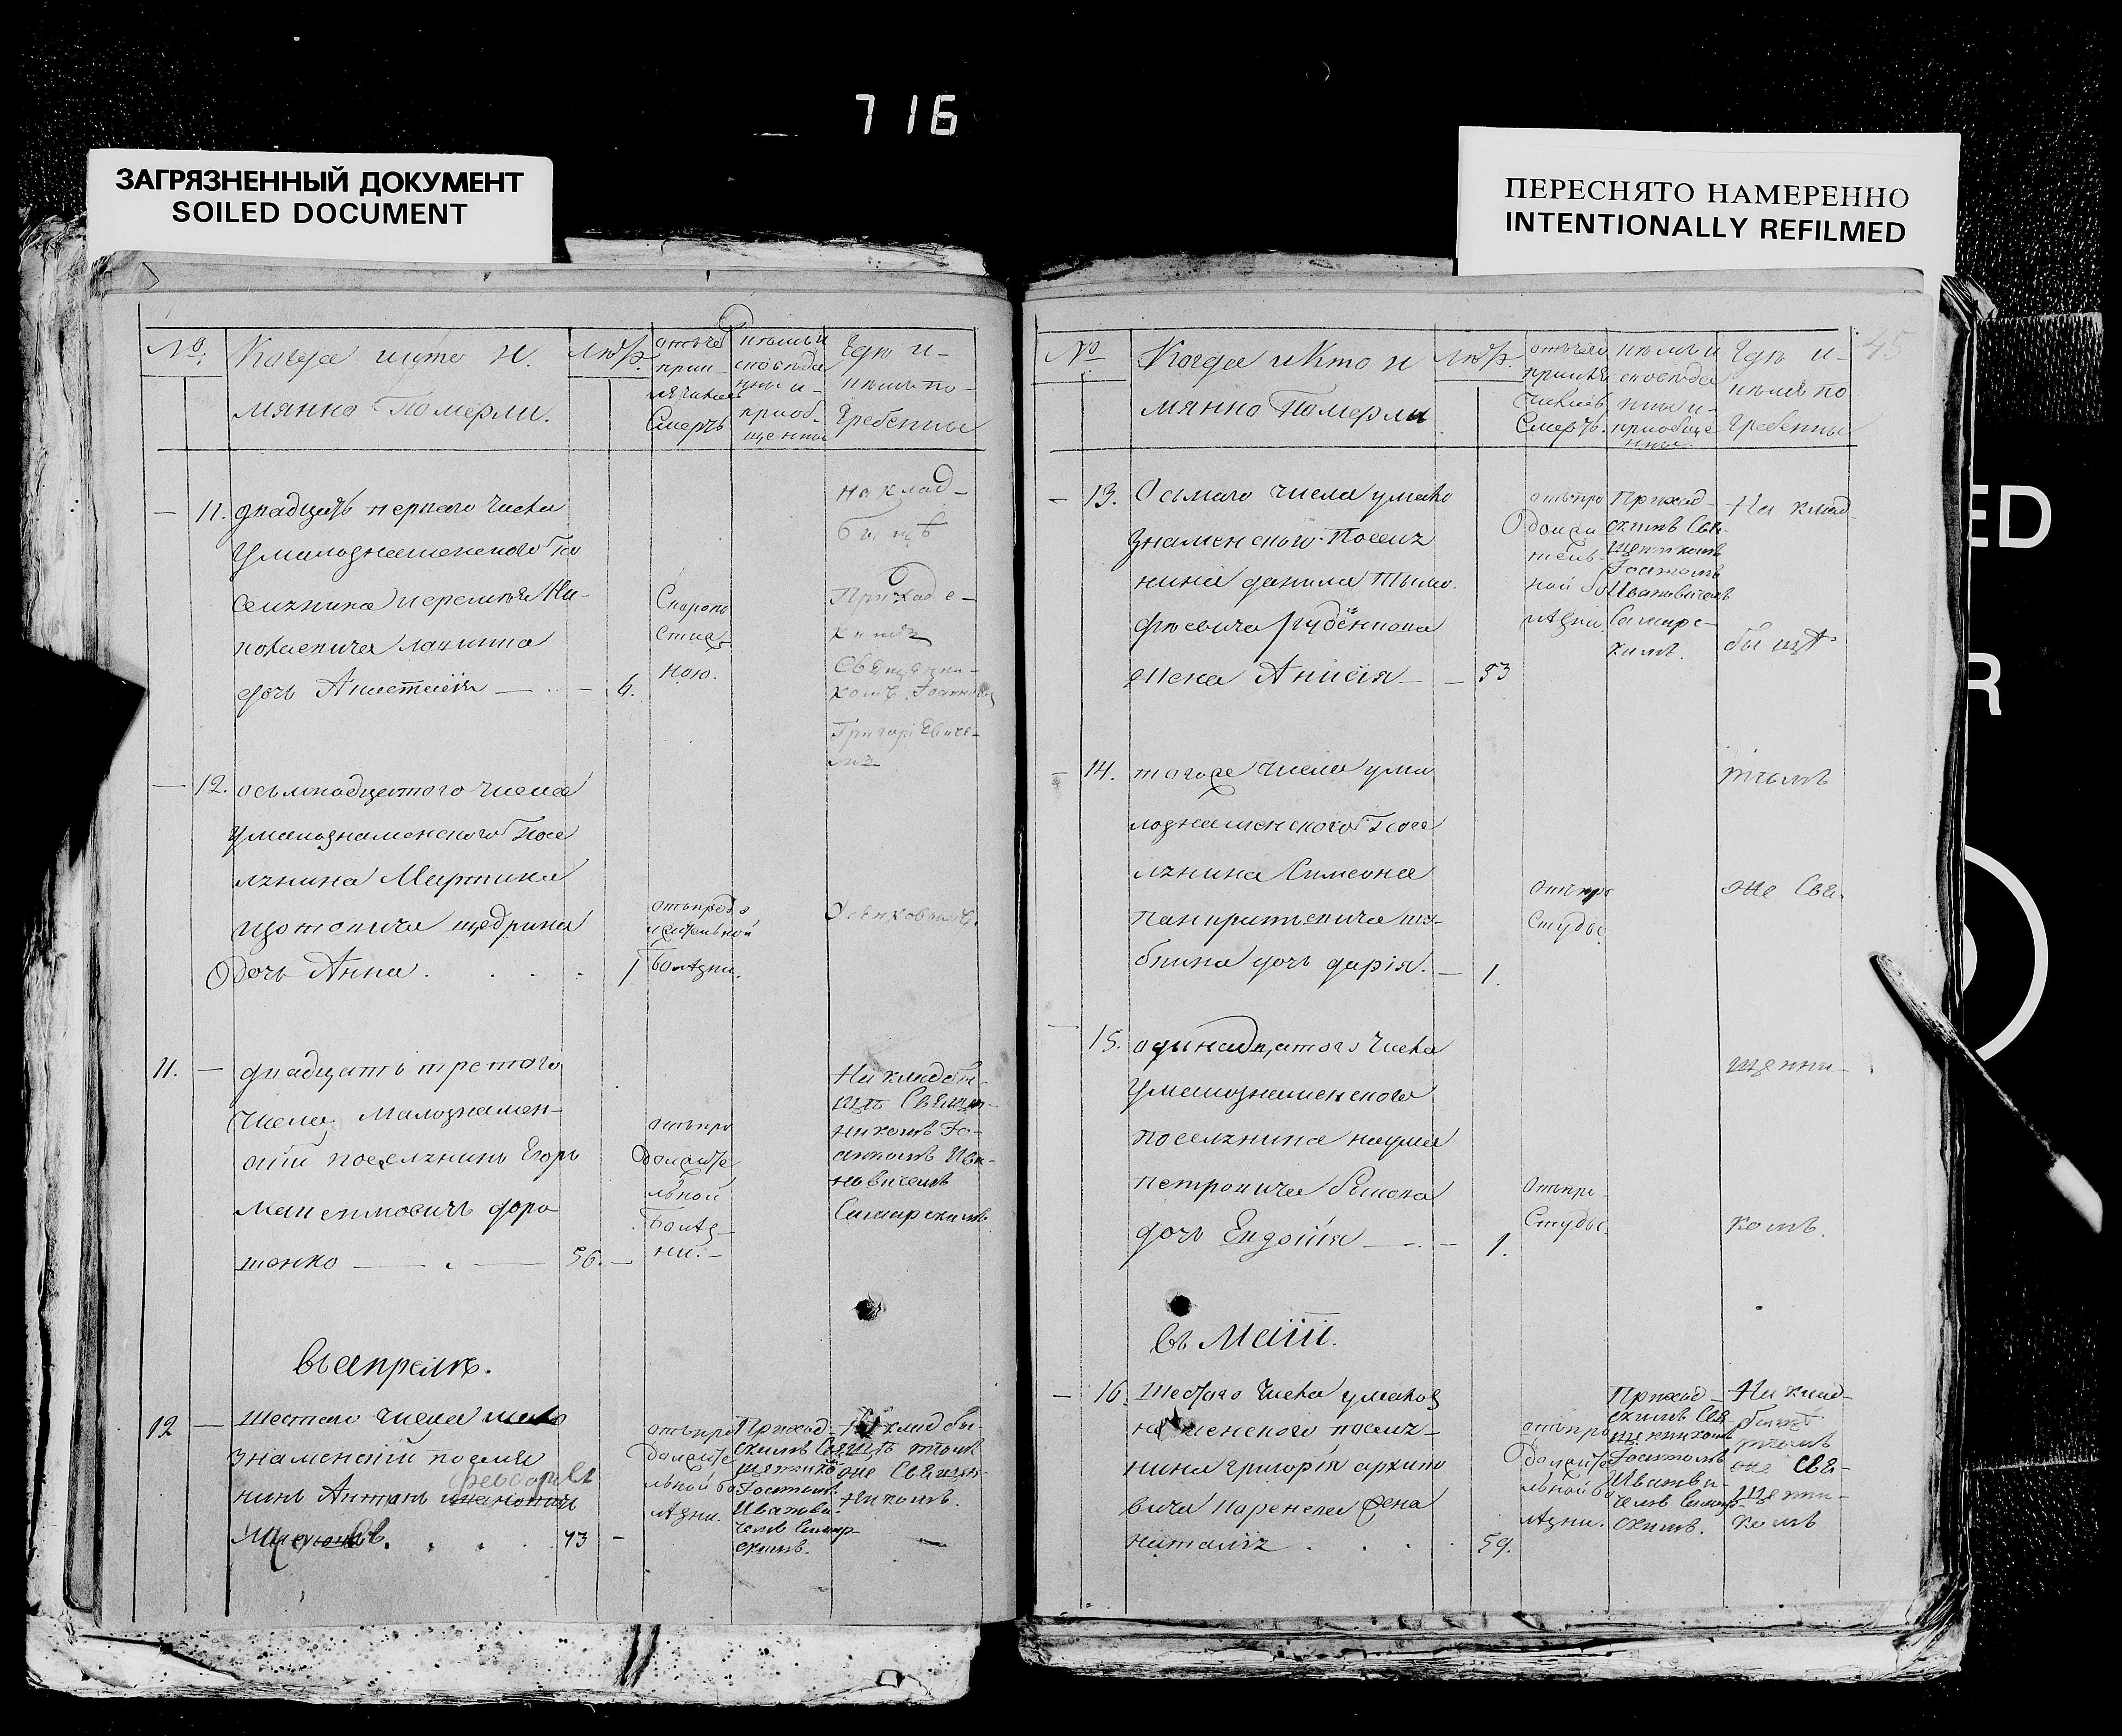 716
ЗАГРЯЗНЕННЫЙ ДОКУМЕНТ
SOILED DOCUMENT
ПЕРЕСНЯТО НАМЕРЕННО
INTENTIONALLY REFILMED
ED
R
№
Когда и кто и
мянно Померли.
Лѣт.
отъ чего
приключилась
Смерть
кѣмъ и
сповѣда
ны и
приоб
щенны
Гдѣ и
кѣмъ по
гребенны
11. двадцать перваго числа
у малознаменского По
селянина
дочь Анастасія
6.
Скоропо
стиж
ною.
на клад
бищѣ
Приход
скимъ
Священни
комъ Іоанномъ
Григоріевиче
мъ
12. осьмнадцатого числа
у малознаменского Посе
лянина Мартина
щедрина
дочь Анна.
1
отъ продо
лжительной
болѣзни.
11. двадцать третого
числа, малознамен
скій поселянинъ Егоръ
Максимовичъ доро
шенко
56.
отъ про
должите
льной
болѣз
ни.
На кладби
щѣ Священ
никомъ Іо
анномъ Ива
новичемъ
Самарскимъ
въ апрелѣ.
12 шестого числа мало
знаменскій поселя
нинъ Антонъ
43
отъ про
должите
льной бо
лѣзни.
Приход
скимъ Свя
щеннико
Іоанном
Иванови
чемъ Самар
скимъ.
На кладби
щѣ тѣмъ
же Священ
никомъ.
45
№
Когда и Кто и
мянно Померли
Лѣт.
отъ чего
приклю
чилась
Смерть.
кѣмъ и
сповѣда
ны и
приобще
нны
Гдѣ и
кѣмъ по
гребенны
13. Осьмаго числа у мало
знаменского Поселя
нина данила Тимо
фѣевича
жена Анисія
53
отъ про
должи
тель
ной бо
лѣзни.
Приход
скимъ Свя
щенникомъ
Іоанномъ
Ивановичемъ
Самарс
кимъ.
На клад
бищѣ
14. того же числа у ма
лознаменского Посе
лянина Симеона
Панкратьевича
дочь дарія.
1.
отъ про
студы.
тѣмъ
же Свя
15. одинадцатого числа
у малознаменского
поселянина наума
петровича
дочь Евдокія
1.
отъ про
студы.
щенни
комъ.
въ Маіи.
16. шестого числа у малоз
наменского поселя
нина григорія архипо
вича жена
наталія
59.
отъ про
должите
льной бо
лѣзни.
Приход
скимъ Свя
щенникомъ
Іоанномъ
Иванови
чемъ Самар
скимъ.
На клад
бищѣ
тѣмъ
же Свя
щенни
комъ